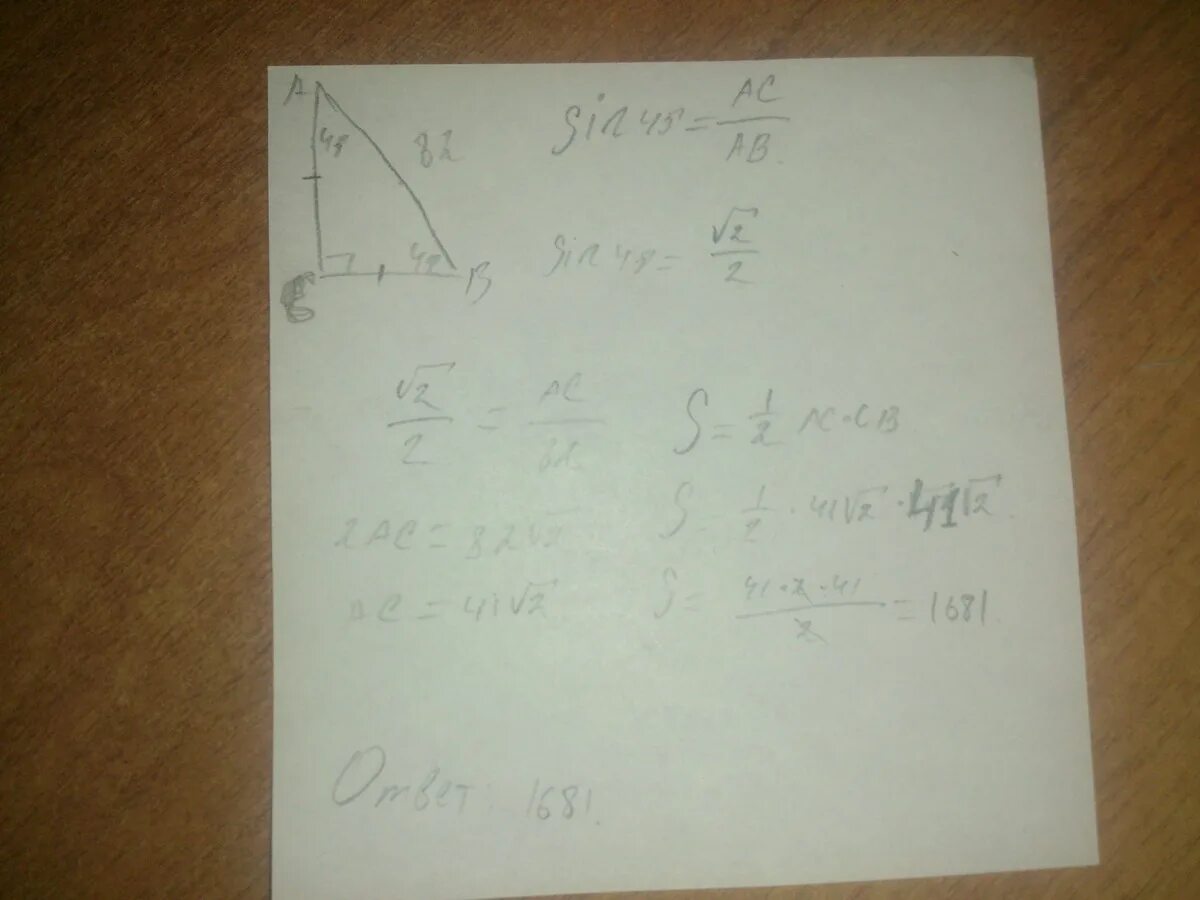 A
45
82
45
C
B
sin 45 = AC/AB.
sin 45 = √2/2
√2/2 = AC/82
2AC = 82√2
AC = 41√2
S = 1/2 AC·CB
S = 1/2 · 41√2 · 41√2.
S = 41·2·41/2 = 1681.
Ответ: 1681.